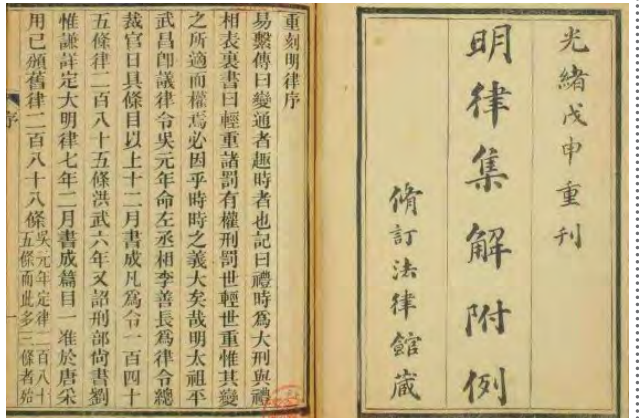 光緒戊申重刊
明律集解附例
脩訂法律館藏
重刻明律序
易繫傳曰變通者趣時者也記曰禮時爲大刑與禮
相表裏書曰輕重諸罰有權刑罰世輕世重惟其變
之所適而權焉必因乎時時之義大矣哉明太祖平
武昌卽議律令吳元年命左丞相李善長爲律令總
裁官日具條目以上十二月書成凡爲令一百四十
五條律二百八十五條洪武六年又詔刑部尙書劉
惟謙詳定大明律七年二月書成篇目一准於唐采
用已頒舊律二百八十八條吳元年定律二百八十
五條而此多三條者殆
序
一